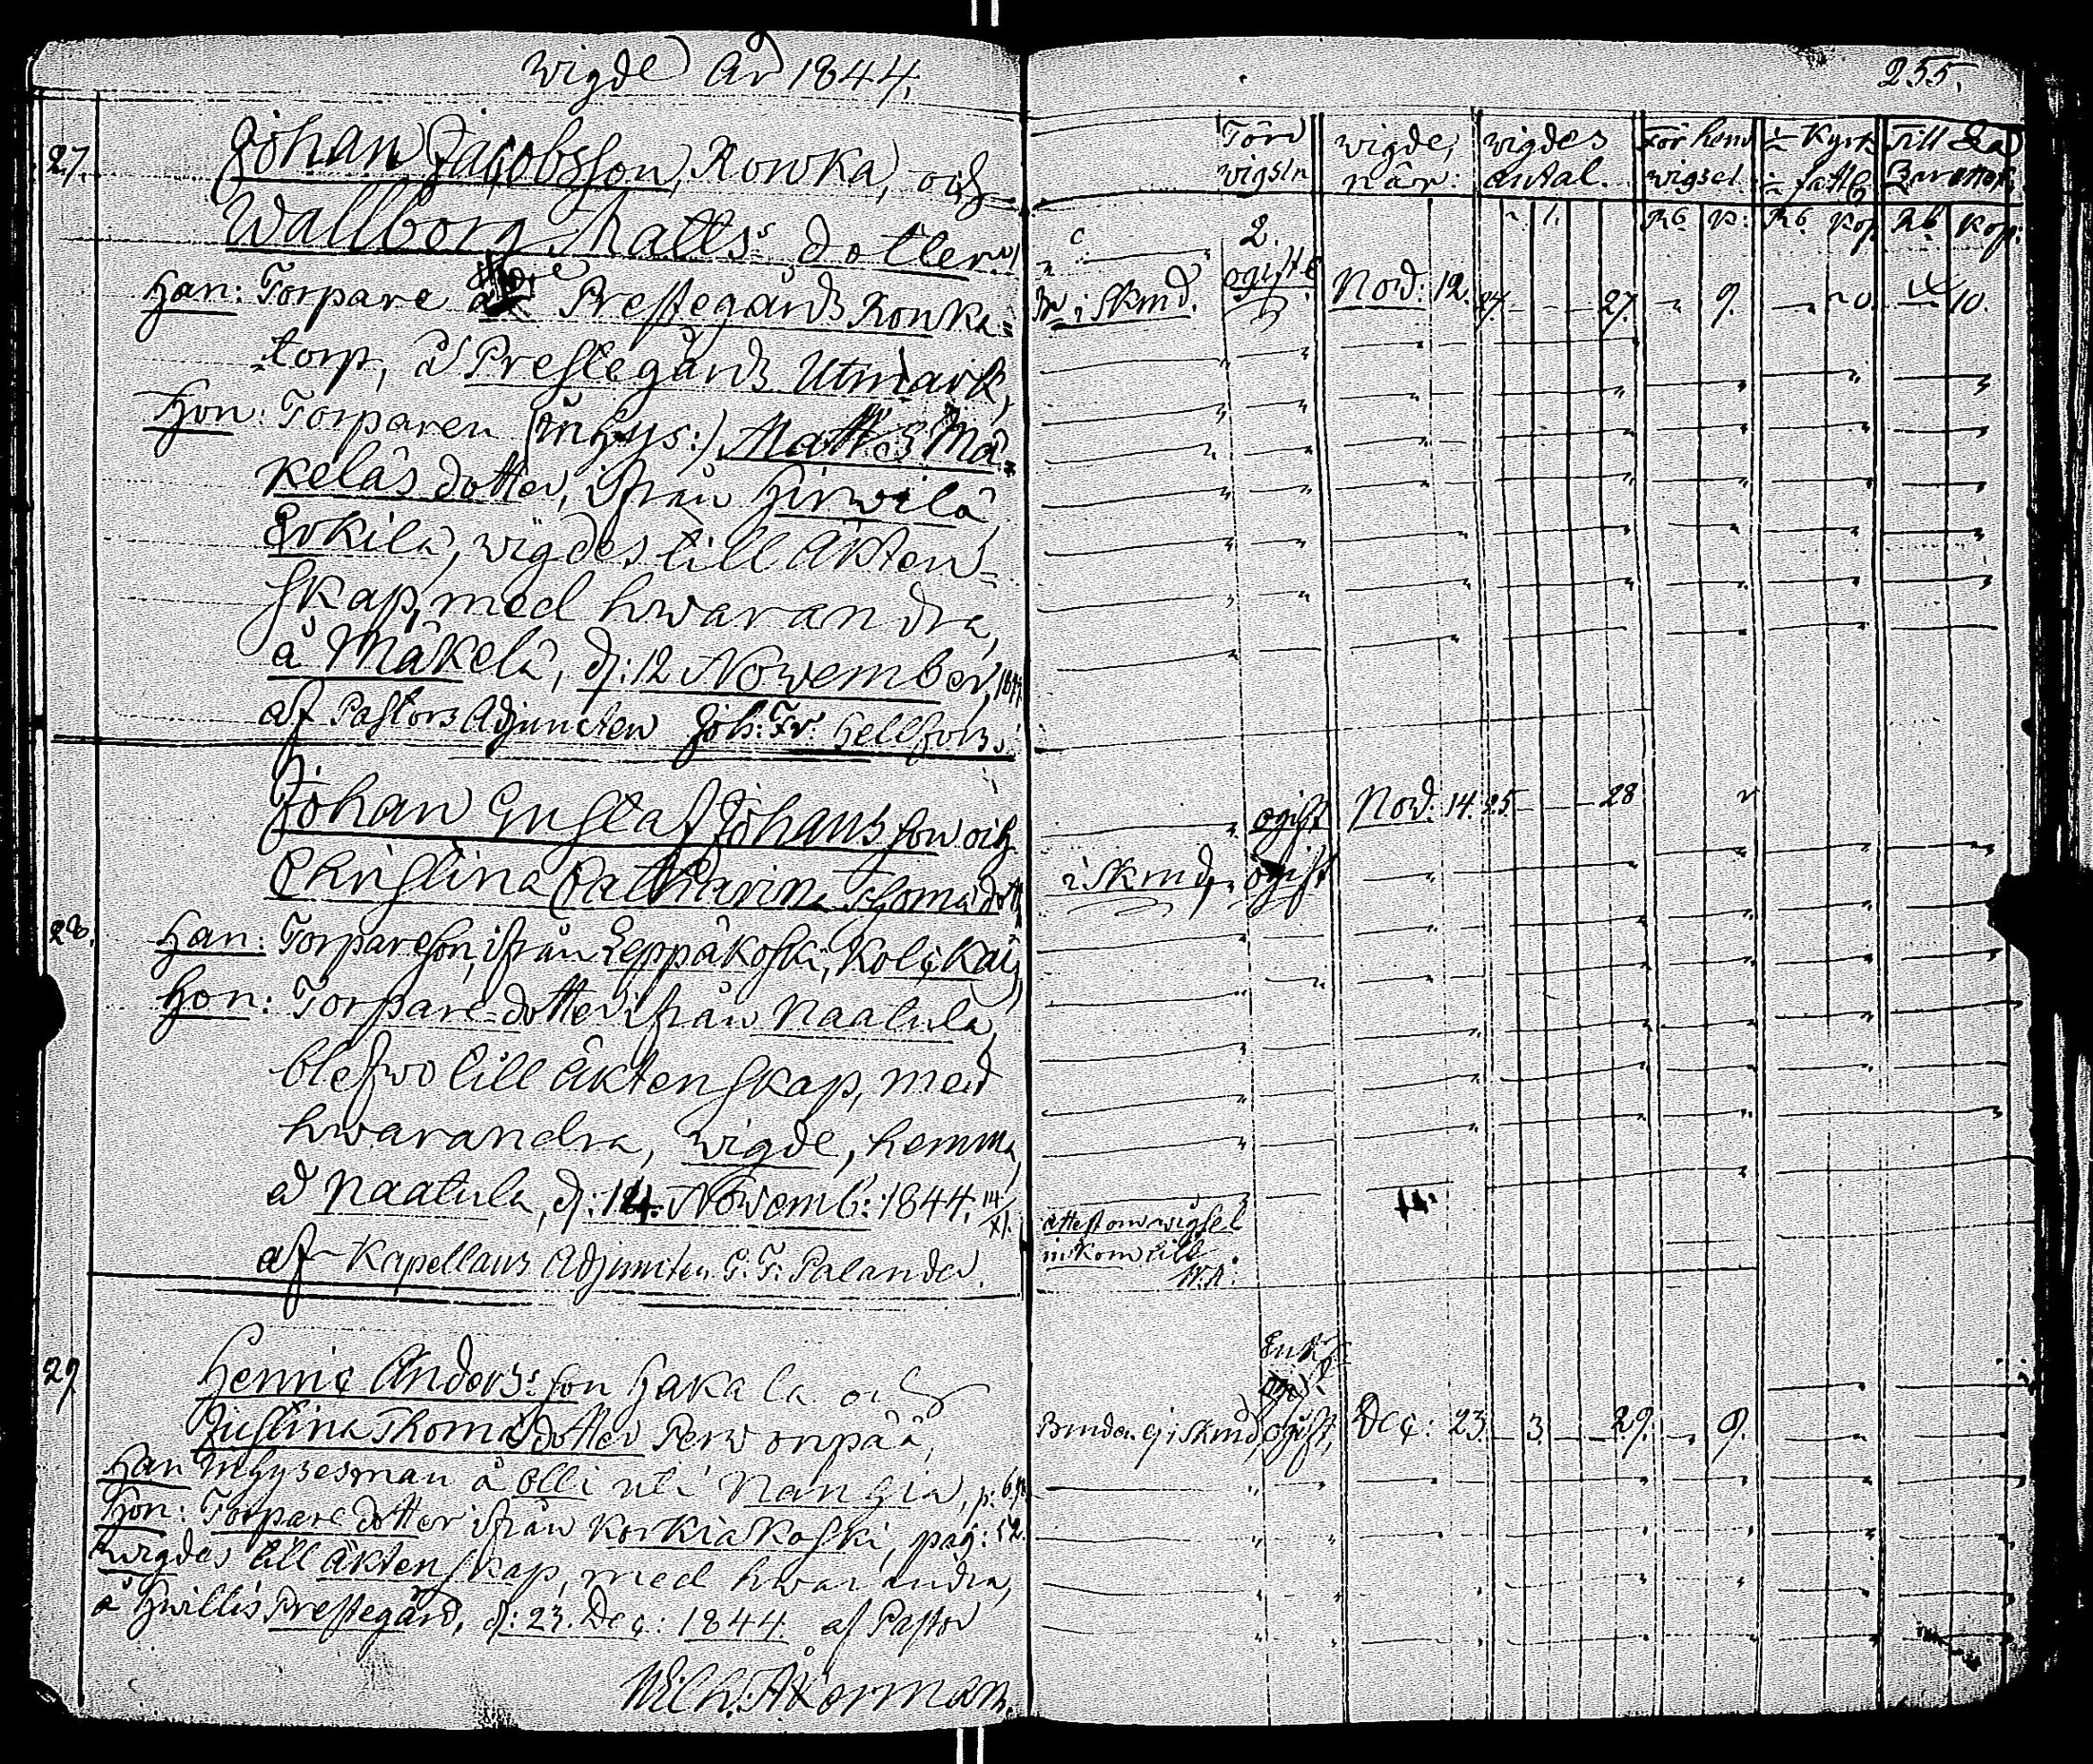 wigde År 1844.
27. Johan Jacobsson, Konka, och
Wallborg Mattsdotter
Han: Torpare Prestegårds Konka-
torp, å Prestegårds Utmark,
Hon: Torparen (inhys:) Matts Mä-
keläs dotter, ifrån Hirwilä
Erkilä, wigdes till Äkten-
skap, med hwarandra,
å Mäkelä, d: 12 Nowember,
af Pastors Adjuncten Joh: Fr: Hellfors.
Johan Gustaf Johansson och
Christina Catharina Thomasdott
28. Han: Torpareson, ifrån Leppäkoski,
Hon: Torpare-dotter ifrån Naatula,
blefwo till Äktenskap, med
hwarandra, wigde, hemma
å Naatula, d: 14. Novemb: 1844. 14/XI.
af Kapellans Adjuncten G: F: Palander.
29 Henric Anders:son Hakala och
Justina Thomasdotter Perwonpää,
Han Inhysesman å Olli uti Nangia, p:
Hon: Torpare dotter ifrån Korkiakoski, pag: 52.
wigdes till Äktenskap, med hwarandra,
å Hwittis Prestegård, d: 23. Dec: 1844. af Pastor
Wilh: Åkerman.
255.
Före wigseln
wigde, när:
wigdes antal.
För hem wigsel
Kyrk
fattig
Till
Rb. K: Rb. Kop. Rb. Kop:
2.
i Skmd. ogifte Nov: 12. 27. 9. 10.
ogift Nov: 14. 25 28
i Skmd, ogift
14.
attest om wigsel
inkom till
W.A:
Enkl:
ej i Skmd, ogift, Dec: 23. 3 29. 9.